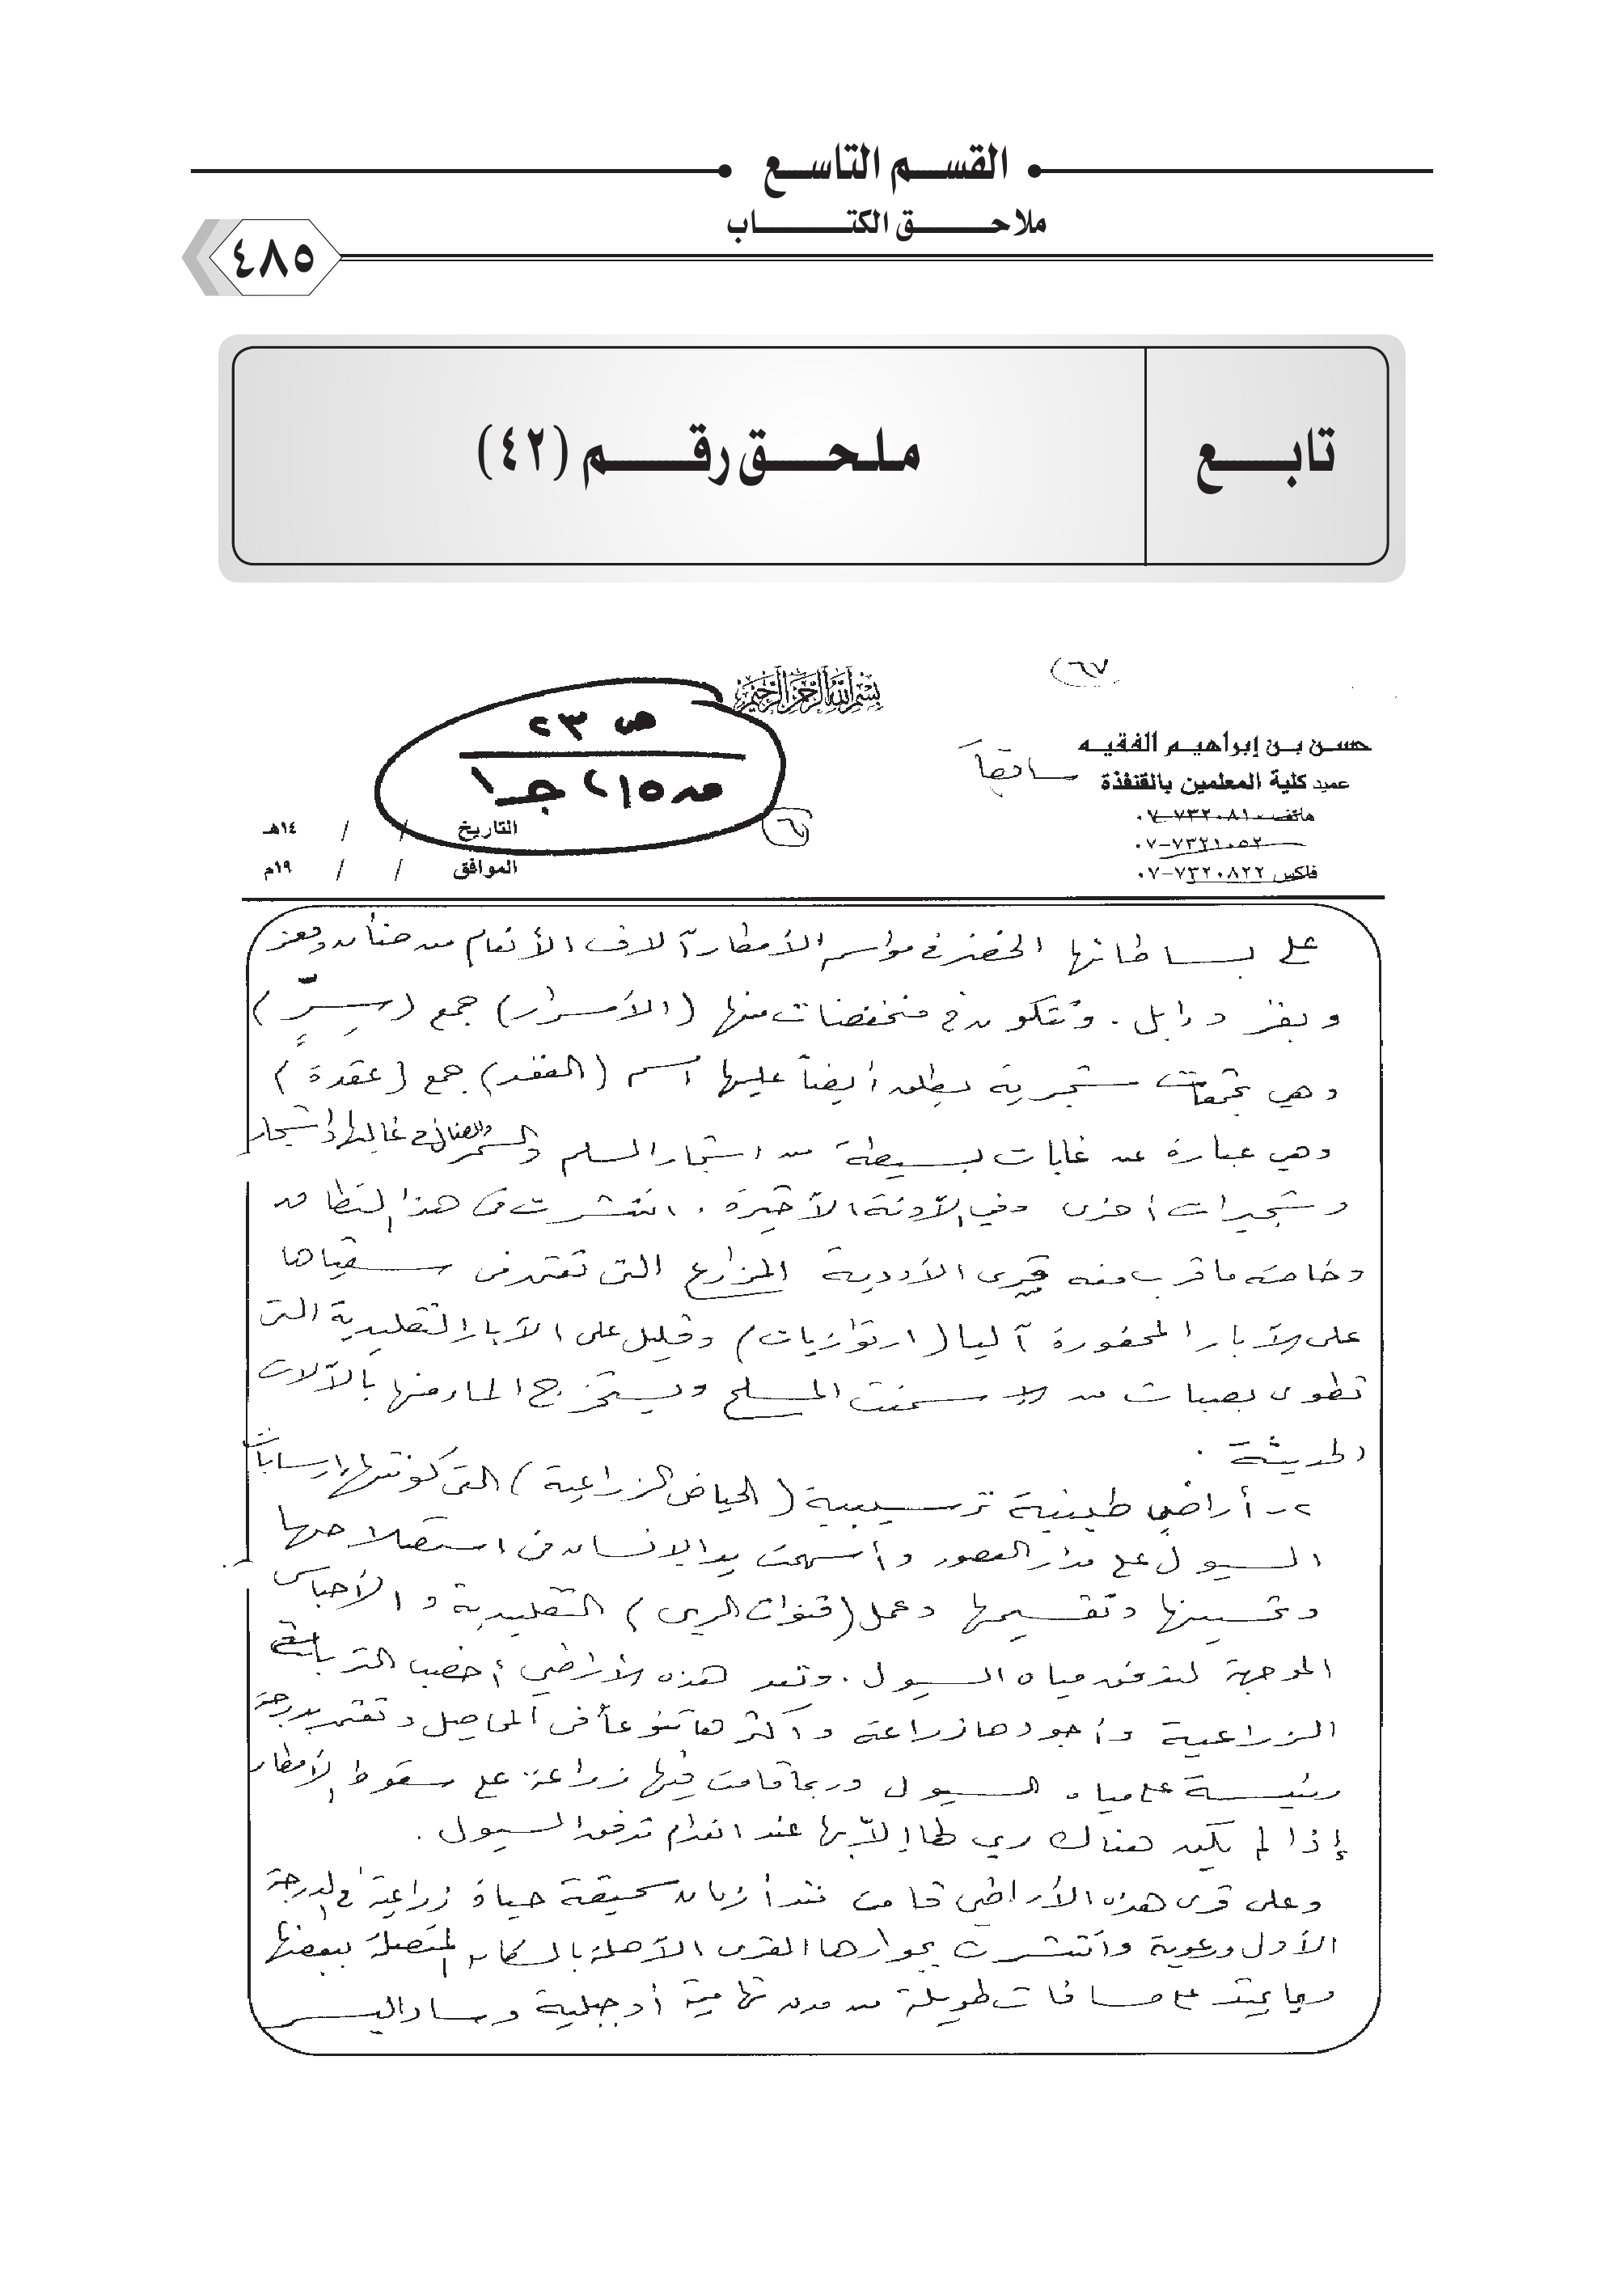 القسم التاسع
ملاحق الكتاب
٤٨٥
تابع
ملحق رقم (٤٢)
(٦٧
بسم الله الرحمن الرحيم
ص ٢٣
حسن بن إبراهيم الفقيه
عميد كلية المعلمين بالقنفذة سابقاً
١٥ ٢ جـ ١
هاتف ٧٣٢٠٨١٠-٠٧
٧٣٢١٠٥٢-٠٧
فاكس ٧٣٢٠٨٢٢-٠٧
٦
التاريخ / / ١٤هـ
الموافق / / ١٩م
على بساطاتها الخضر في مواسم الأمطار آلاف الأنعام من ضأن ومعز
وبقر وإبل . وتتكون في منخفضات منها (الأسرار) جمع (سِرّ)
وهي تجمعات شجرية يطلق أيضاً عليها اسم (العقد) جمع (عقدة)
وهي عبارة عن غابات بسيطة من اشجار السلم والسمر والضال في غالبها وأشجار
وشجيرات أخرى وفي الآونة الأخيرة . انتشرت في هذا النطاق
وخاصة ما قرب منه قرى الأودية المزارع التي تعتمد في سقياها
على الآبار المحفورة آليا (ارتوازيات) وقليل على الآبار التقليدية التي
تطوى بصبات من الاسمنت المسلح ويستخرج الماء منها بالآلات
الحديثة .
٢- أراضي طينية ترسيبية (الحياض الزراعية) التي كونتها إرسابات
السيول على مدار العصور وأسهمت يد الإنسان في استصلاحها
وتحسينها وتقسيمها وعمل (قنوات الري) التقليدية والأحباس
الموجهة لتدفق مياه السيول . وتعد هذه الأراضي أخصب التربات
الزراعية وأجودها زراعة واكثرها تنوعاً في المحاصيل وتعتمد بدرجة
رئيسة على مياه السيول وربما قامت فيها زراعة على سقوط الأمطار
إذا لم يكن هناك ري لها إلا بها عند انعدام تدفق السيول .
وعلى قرى هذه الأراضي قامت منذ أزمان سحيقة حياة زراعية في الدرجة
الأولى ورعوية وانتشرت بجوارها القرى الآهلة بالسكان المتصلة ببعضها
وبما يمتد على مسافات طويلة من مدن تهامية أو جبلية وساد اليسر